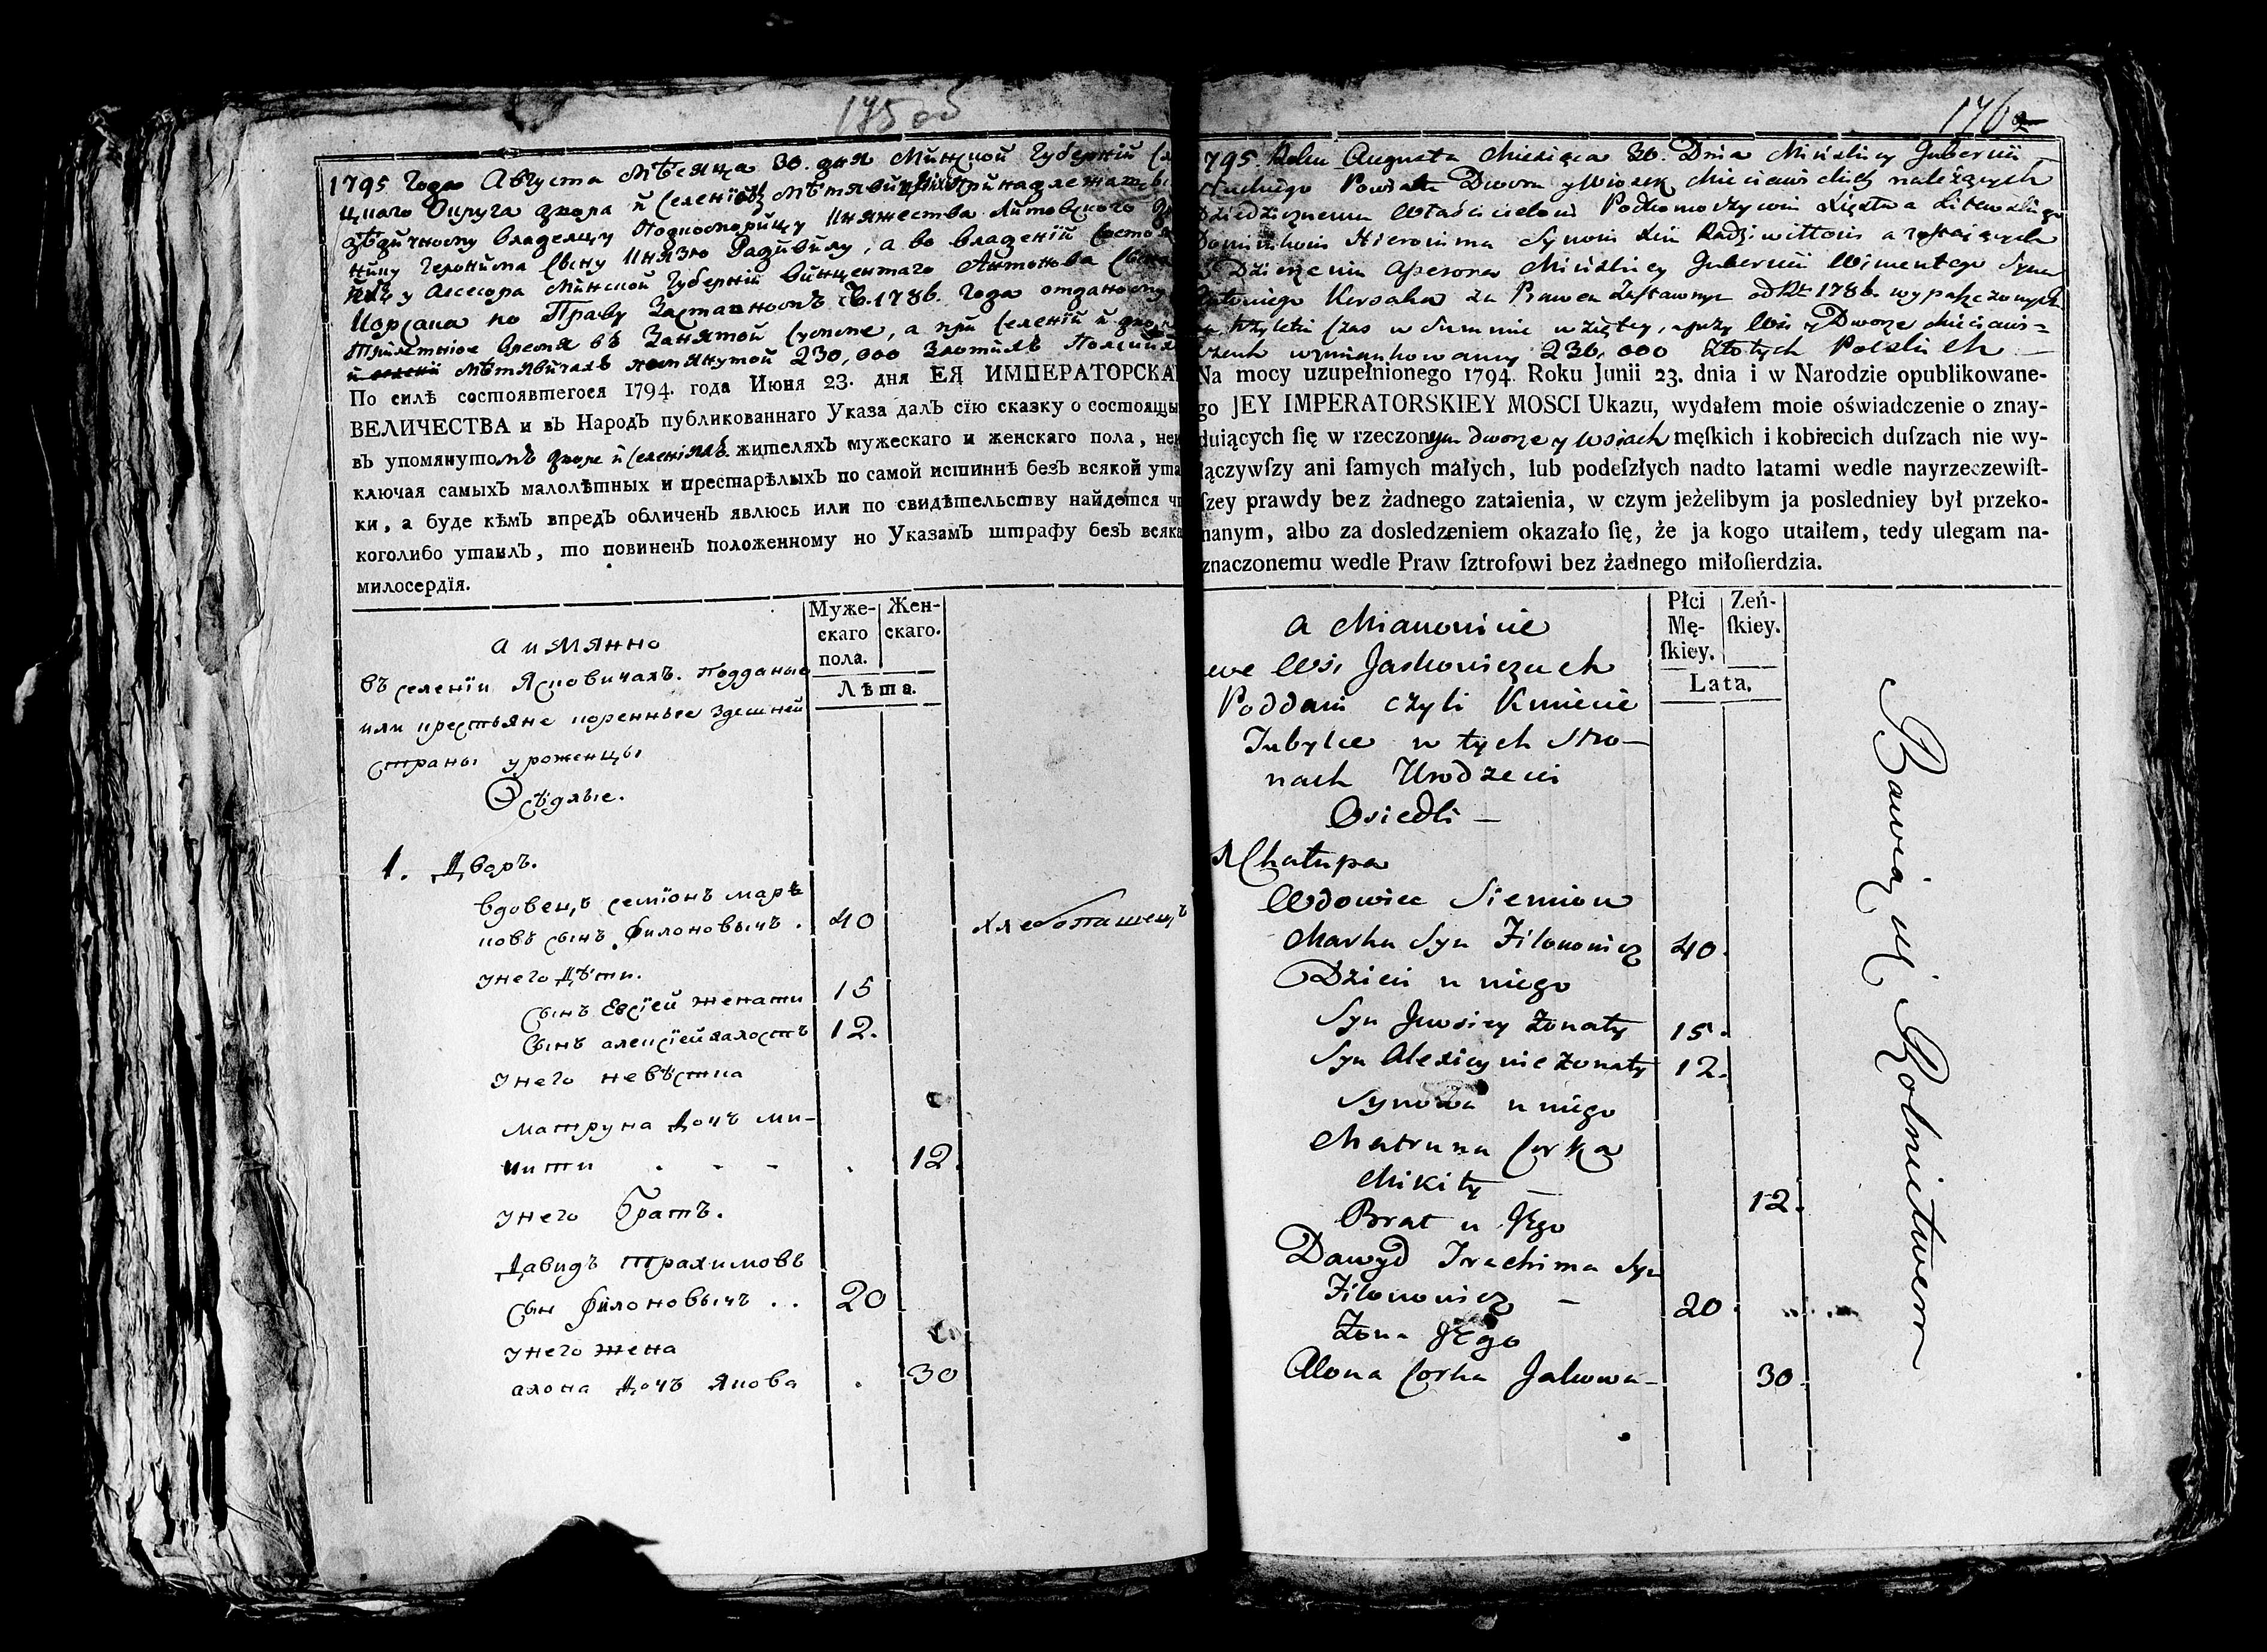 175 об
1795 Года Августа Мѣсяца 30. дня Минской Губерніи
цкаго Округа двора и Селеніяхъ
дѣдичному владелцу Подкоморицу Княжества Литовского
нику Геронима Сыну Князю Радзивилу, а во владеніи
у Асесора Минской Губерніи Винцентаго Антонова
Корсака по Праву Заставномъ 1786. Года отданому
Трилетніое время въ Занятой Сумме, а при Селеніи и
Мѣтявичахъ помянутой 230,000 Злотихъ
По силѣ состоявтегося 1794. года Июня 23. дня ЕЯ ИМПЕРАТОРСКА
ВЕЛИЧЕСТВА и вЪ НародЪ публикованнаго Указа далЪ сїю сказку о состоящы
вЪ упомянутомъ дворе и Селеніяхъ жителяхЪ мужескаго и женскаго пола,
ключая самыхЪ малолѣтныхЪ и престарѣлыхЪ по самой истиннѣ безЪ всякой ута
ки, а буде кѣмЪ впредЪ обличенЪ явлюсь или по свидѣтельству найдется
коголибо утаилЪ, то повиненЪ положенному по УказамЪ штрафу безЪ всяка
милосердїя.
Муже-скаго пола. Жен-скаго.
Лѣта.
а имянно
въ селенїи Ясковичахъ. Подданые
или крестьяне коренные здешней
страны уроженцы
Осѣдлые.
1. Дворъ.
вдовецъ семїонъ марѣ
ковъ сынъ филоновычъ . 40 хлебопашецъ
унего дѣти.
Сынъ Евсїей женати 15
Сынъ алексїей халостъ 12.
унего невѣстка
матруна дочъ ми-
кити . - - . 12.
унего братъ.
давидъ трахимовъ
сын филоновычъ . . 20
унего жена
алона дочъ якова . 30
176
795 Roku Augusta Miesiąca 30. Dnia Mińskiey Gubernii
Słuckiego Powiatu Dworu y Wiosek należących
Dziedzicznemu Właścicielowi Podkomorzycowi Xięstwa Litewskiego
Dominikowi Hieronima Synowi Xiu Radziwiłłowi a zostaiących
Dzierżeniu Assesora Mińskiey Gubernii Wincentego Syna
Antoniego Korsaka za Prawem Zastawnym od Rku 1786. wypuszczonych
trzyletni czas w Summie wziętey, a przy Wsi y Dworze
wzmiankowaney 230,000 Złotych Polskich —
Na mocy uzupełnionego 1794. Roku Junii 23. dnia i w Narodzie opublikowane-
go JEY IMPERATORSKIEY MOSCI Ukazu, wydałem moie oświadczenie o znay-
duiących ſię w rzeczonym dworze y wsiach męſkich i kobiecich duſzach nie wy-
łączywſzy ani ſamych małych, lub podeſzłych nadto latami wedle nayrzeczewiſt-
ſzey prawdy bez żadnego zataienia, w czym jeżelibym ja posledniey był przeko-
nanym, albo za dosledzeniem okazało ſię, że ja kogo utaiłem, tedy ulegam na-
znaczonemu wedle Praw ſztrofowi bez żadnego miłoſierdzia.
Płci Mę-ſkiey. Zeń-ſkiey.
Lata.
a Mianowicie
we Wsi Jaskowiczach
Poddani czyli Kmiecie
Tubylce w tych Stro-
nach Urodzeni
Osiedli —
1 Chałupa
Wdowiec Siemion
Marka Syn Filonowicz 40.
Dzieci u niego
Syn Jewsiey Żonaty 15.
Syn Alexiey nie żonaty 12.
Synowa u niego
Matruna Corka
Mikity — 12.
Brat u Jego
Dawyd Trachima Syn
Filonowicz — 20.
Żona Jego
Alona Corka Jakowa 30.
Bawią się Rolnictwem